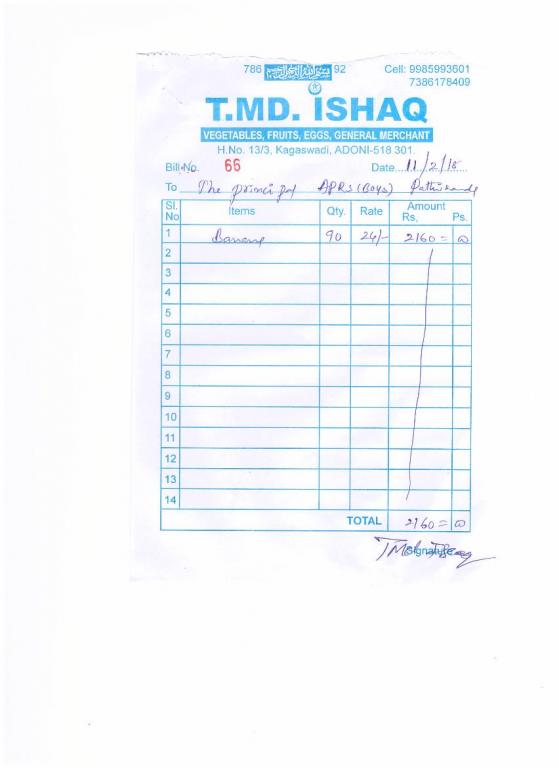 786 بسم الله الرحمن الرحيم 92 Cell: 9985993601
7386178409
T.MD. ISHAQ
VEGETABLES, FRUITS, EGGS, GENERAL MERCHANT
H.No. 13/3, Kagaswadi, ADONI-518 301.
Bill No. 66 Date 11/2/18
To The principal APRS (Boys)
Sl. No Items Qty. Rate Amount Rs. Ps.
1 Banana 90 24/- 2160 = 00
2
3
4
5
6
7
8
9
10
11
12
13
14
TOTAL 2160 = 00
Signature